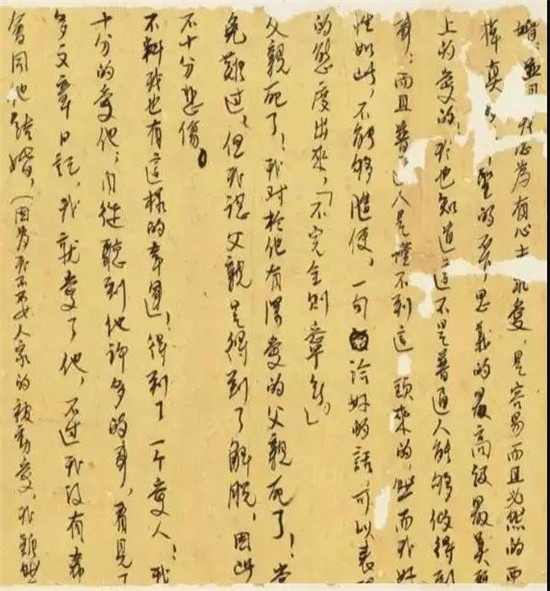 婚,並且 我以為有心去求愛,是容易而且必然的要
掉真 聖的不 思義的最高級最美麗
上的愛的!我也知道這不是普通人能夠做得到
事;而且普通人是謹不到這一頭來的,然而我好
性如此,不能夠隨便,一句恰好的話,可以表現
的態度出來,「不完全則寧無」
父親死了!我對於他有深愛的父親死了!當
免難過,但我認父親是得到了解脫,因此
不十分悲傷。
不料我也有這樣的幸運!得到了一个愛人!我
十分的愛他;自從聽到他許多的事,看見了
多文章日記,我就愛了他,不過我沒有希
會同他結婚,(因為我不要人家的被動愛,我雖然